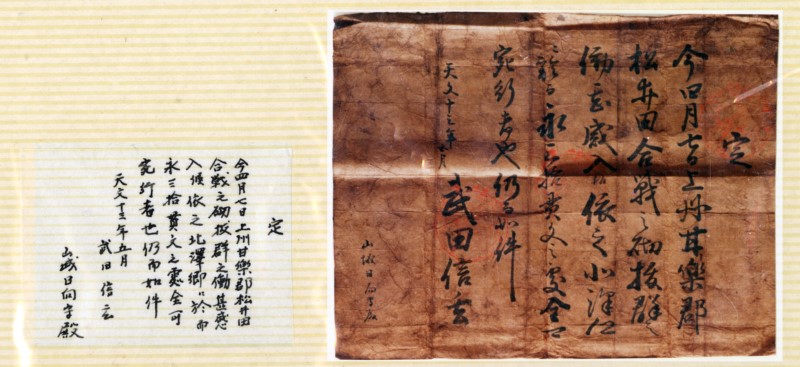 定
今四月七日上州甘樂郡
松井田合戰之砌拔群之
働甚感入候依之北澤
永三拾貫文之處全可
宛行者也仍而如件
天文十三年五月
武田信玄
山城日向守殿
定
今四月七日上州甘樂郡松井田
合戰之砌拔群之働甚感
入候依之北澤郷ニ於而
永三拾貫文之處全可
宛行者也仍而如件
天文十三年五月
武田信玄
山城日向守殿